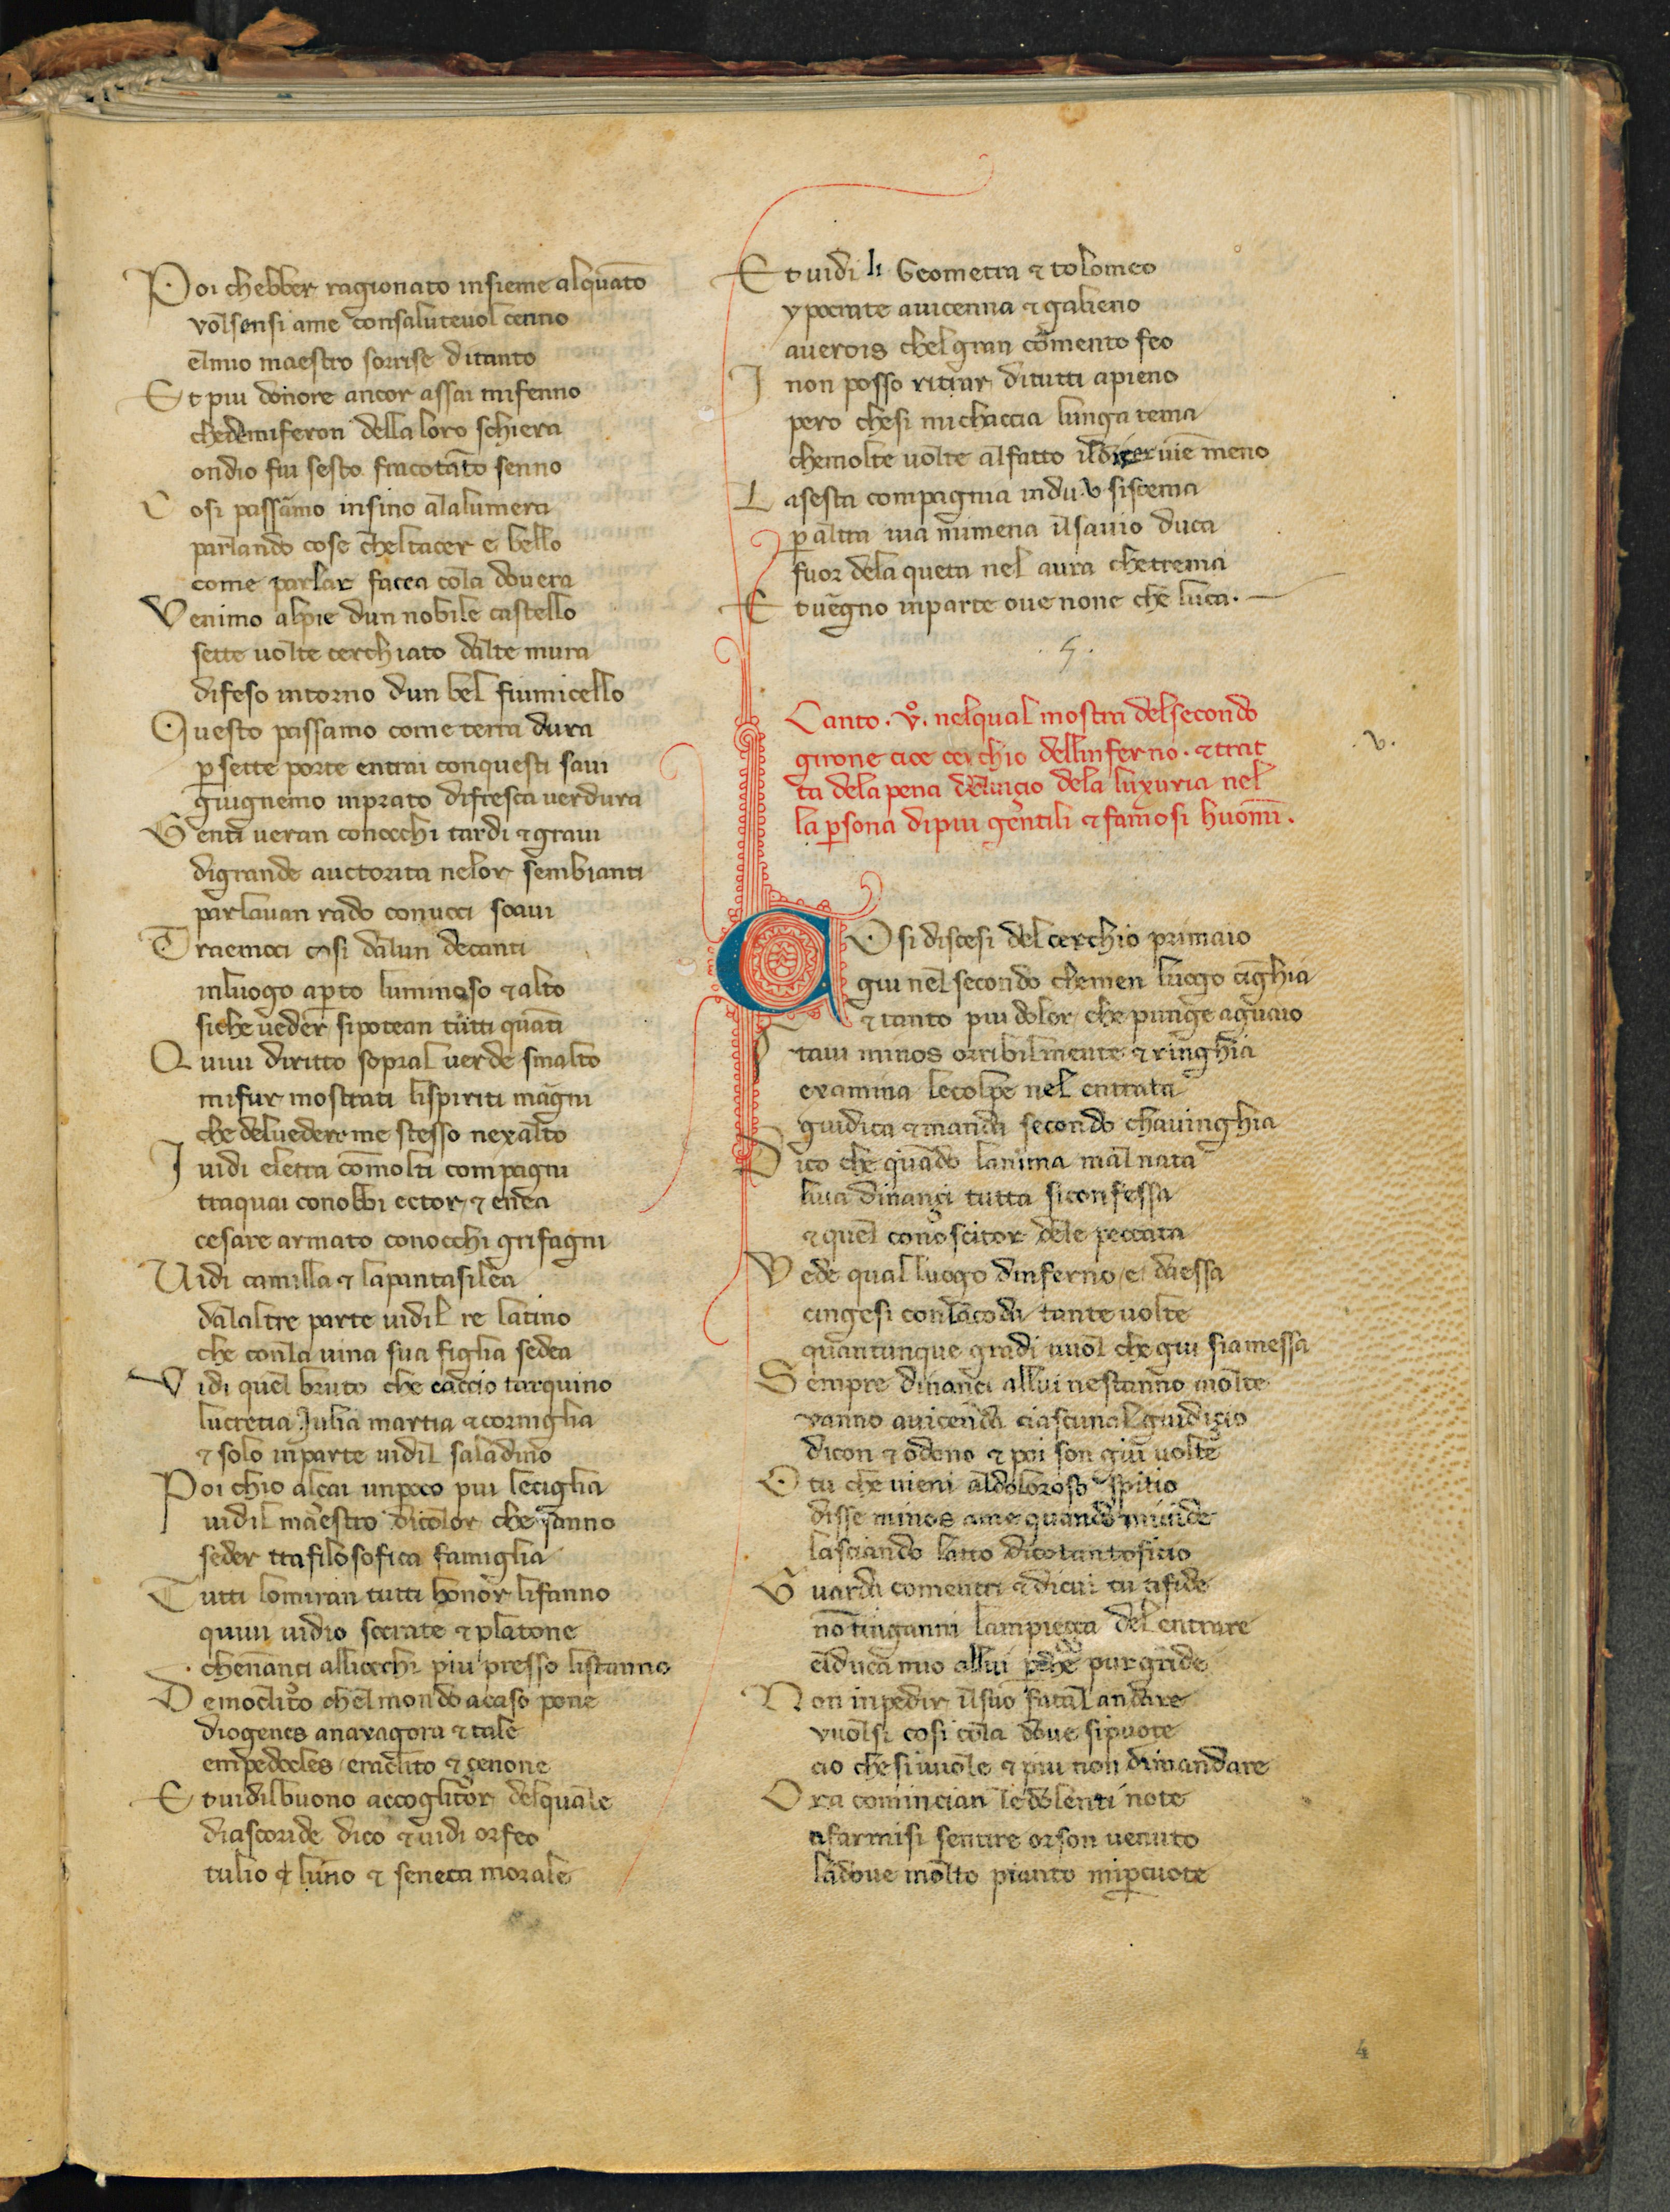 Poi chebber ragionato insieme alquāto
volsonsi ame consaluteuol cenno
elmio maestro sorrise ditanto
Et piu donore ancor assai mifenno
chedemiferon della loro schiera
ondio fui sesto fracotāto senno
Cosi passāmo insino alalumera
parlando cose cheltacer e bello
come parlar facea cola douera
Venimo alpie dun nobile castello
sette uolte cerchiato dalte mura
difeso intorno dun bel fiumicello
Questo passamo come terra dura
ꝑ sette porte entrai conquesti saui
giugnemo inprato difresca uerdura
Genti ueran conocchi tardi ⁊ graui
digrande auctorita nelor sembianti
parlauan rado conuoci soaui
Traemoci cosi dalun decanti
inluogo apto luminoso ⁊ alto
siche ueder sipotean tutti quāti
Quiui diritto sopral uerde smalto
mifur mostrati lispiriti magni
che deluederme stesso nexalto
I uidi eletra cōmolti compagni
traquai conobbi ector ⁊ enea
cesare armato conocchi grifagni
Uidi camilla ⁊ lapantasilea
dalaltre parte uidil re latino
che conla uina sua figlia sedea
Vidi quel bruto che caccio tarquino
lucretia Julia martia ⁊ corniglia
⁊ solo inparte uidil saladino
Poi chio alçai unpoco piu leciglia
uidil maestro dicolor che sanno
seder trafilosofica famiglia
Tutti lomiran tutti honor lifanno
quiui uidio socrate ⁊ platone
chenanci alliocchi piu presso listanno
Democlito chelmondo acaso pone
diogenes anaxagora ⁊ tale
empedocles eraclito ⁊ çenone
Et uidilbuono accoglitor delquale
diascoride dico ⁊ uidi orfeo
tulio ⁊ lino ⁊ seneca morale
Et uidi li Geometra ⁊ tolomeo
ypocrate auicenna ⁊ galieno
auerois chelgran cōmento feo
I non posso ritrar ditutti apieno
pero chesi michaccia lunga tema
chemolte uolte alfatto ildicer uiē meno
Lasesta compagnia indu. v siscema
ꝑ altra uia mimena ilsauio duca
fuor dela queta nel aura chetrema
Et uegno inparte oue none che luca.
.5.
Canto. vº. nelqual mostra delsecondo
girone cioe cerchio dellinferno. ⁊ trat
ta dela pena deluicio dela luxuria nel
la ꝑsona dipiu gentili ⁊ famosi huomī.
.v.
COsi discesi del cerchio primaio
giu nel secondo chemen luogo cinghia
⁊ tanto piu dolor che punge aguaio
Staui minos orribilmente ⁊ ringhia
examina lecolpe nel entrata
giudica ⁊ manda secondo chauinghia
Dico che quādo lanima mal nata
liuia dinanci tutta siconfessa
⁊ quel conoscitor dele peccata
Vede qual luogo dinferno e daessa
cingesi conlacoda tante uolte
quantunque gradi uuol che giu siamessa
Sempre dinanci allui nestanno molte
vanno auicenda ciascunalgiudiçio
dicon ⁊ odono ⁊ poi son giu uolte
O tu che uieni aldoloroso ospitio
disse minos ame quando miuide
lasciando latto dicotantoficio
Guarda comentri ⁊ dicui tu tifide
nō tinganni lampieçça del entrare
elduca mio allui ꝑche purgride
Non inpedir ilsuo fatal andare
vuolsi cosi cola doue sipuote
cio che siuuole ⁊ piu non dimandare
Ora comincian ledolenti note
afarmisi sentire orson uenuto
ladoue molto pianto miꝑcuote
4